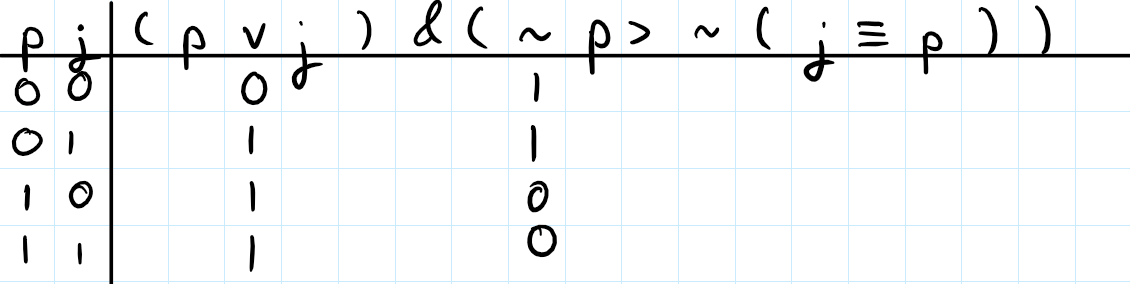 p j ( p v j ) & ( ~ p > ~ ( j ≡ p ) )
0 0 0 1
0 1 1 1
1 0 1 0
1 1 1 0